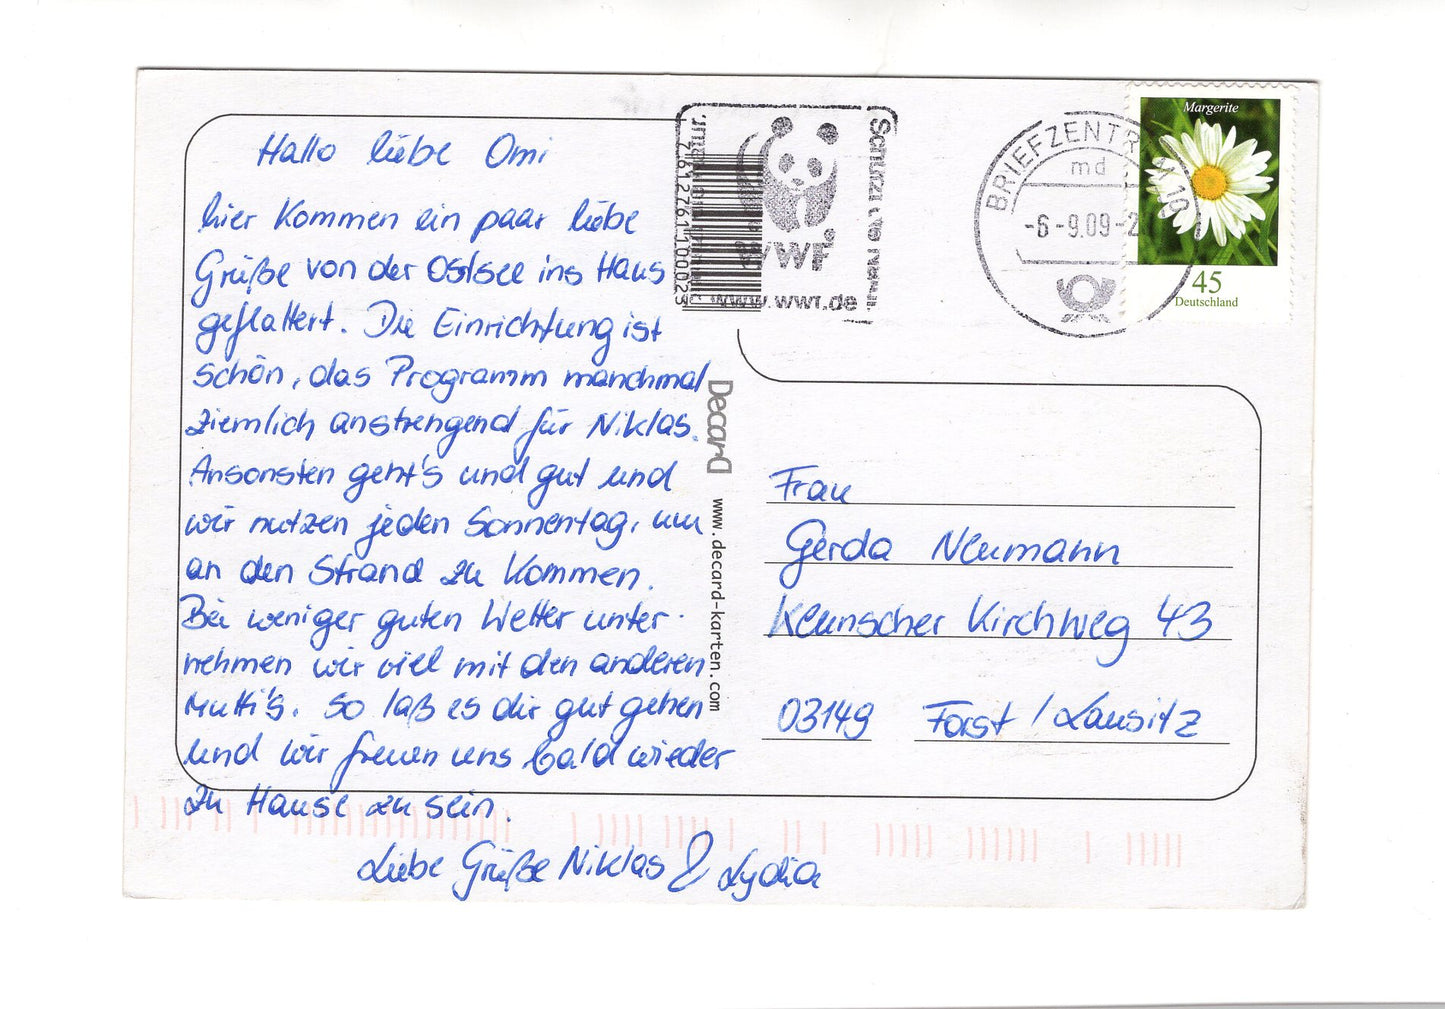 Hallo liebe Omi
hier kommen ein paar liebe
Grüße von der Ostsee ins Haus
geflattert. Die Einrichtung ist
schön, das Programm manchmal
ziemlich anstrengend für Niklas.
Ansonsten geht's und gut und
wir nutzen jeden Sonnentag, um
an den Strand zu kommen.
Bei weniger guten Wetter unter-
nehmen wir viel mit den anderen
Mutti's. So laß es dir gut gehen
und wir freuen uns bald wieder
zu Hause zu sein.
Liebe Grüße Niklas & Lydia
7612761100023
WWF
www.wwf.de
Decard
www.decard-karten.com
BRIEFZENTRUM 10
md
-6-9.09-2
Margerite
45
Deutschland
Frau
Gerda Neumann
Keunscher Kirchweg 43
03149 Forst / Lausitz